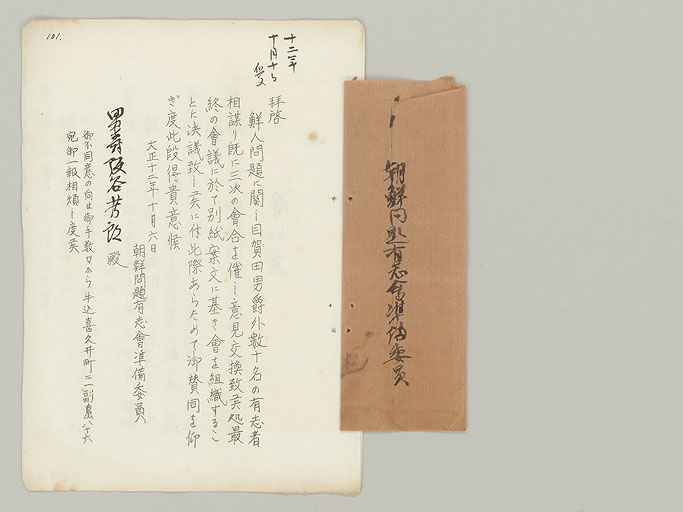 朝鮮問題有志会準備委員
101.
十二年
十月十日
受
拝啓
鮮人問題に関し目賀田男爵外数十名の有志者
相謀り既に三次の會合を催し意見交換致候処最
終の會議に於て別紙案文に基き會を組織するこ
とに決議致し候に付此際あらためて御賛同を仰
ぎ度此段得貴意候
大正十二年十月六日
朝鮮問題有志會準備委員
男爵阪谷芳郎殿
御不同意の向は御手数ながら牛込喜久井町二一副島八十六
宛御一報相煩し度候